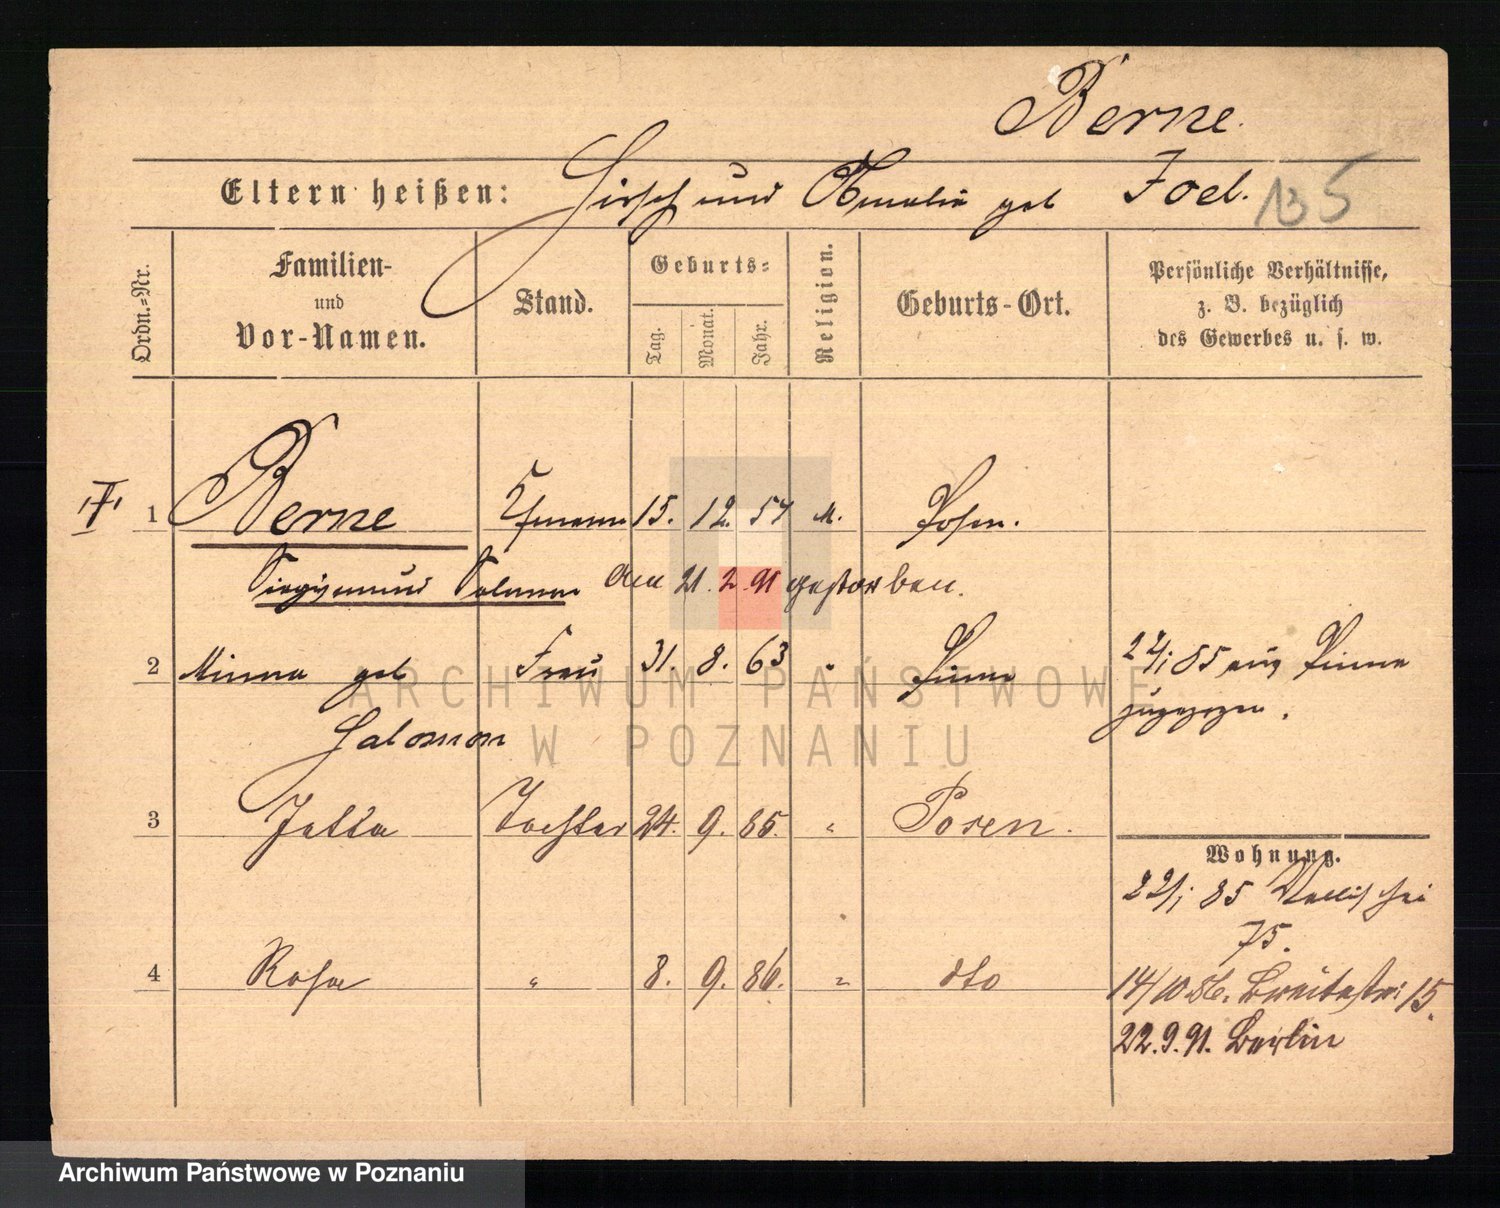 Berne.
Eltern heißen: Hirsch und Amalie geb Joel. 135
Ordn.=Nr.
Familien-
und
Vor-Namen.
Stand.
Geburts=
Tag.
Monat.
Jahr.
Religion.
Geburts-Ort.
Persönliche Verhältnisse,
z. B. bezüglich
des Gewerbes u. s. w.
1 Berne 15. 12. 57 M. Posen.
Siegismund Salomon den 21.2.91 gestorben.
2 Minna geb Frau 31. 8. 63 " Pinne 22/1 85 aus Pinne
Salomon zugezogen.
3 Jetta Tochter 24. 9. 85. " Posen.
Wohnung.
22/1 85 Wallischei
75.
4 Rosa " 8. 9. 86. " dto 14/10 86. Breitestr: 15.
22.9.91. Berlin
ARCHIWUM PAŃSTWOWE
W POZNANIU
Archiwum Państwowe w Poznaniu